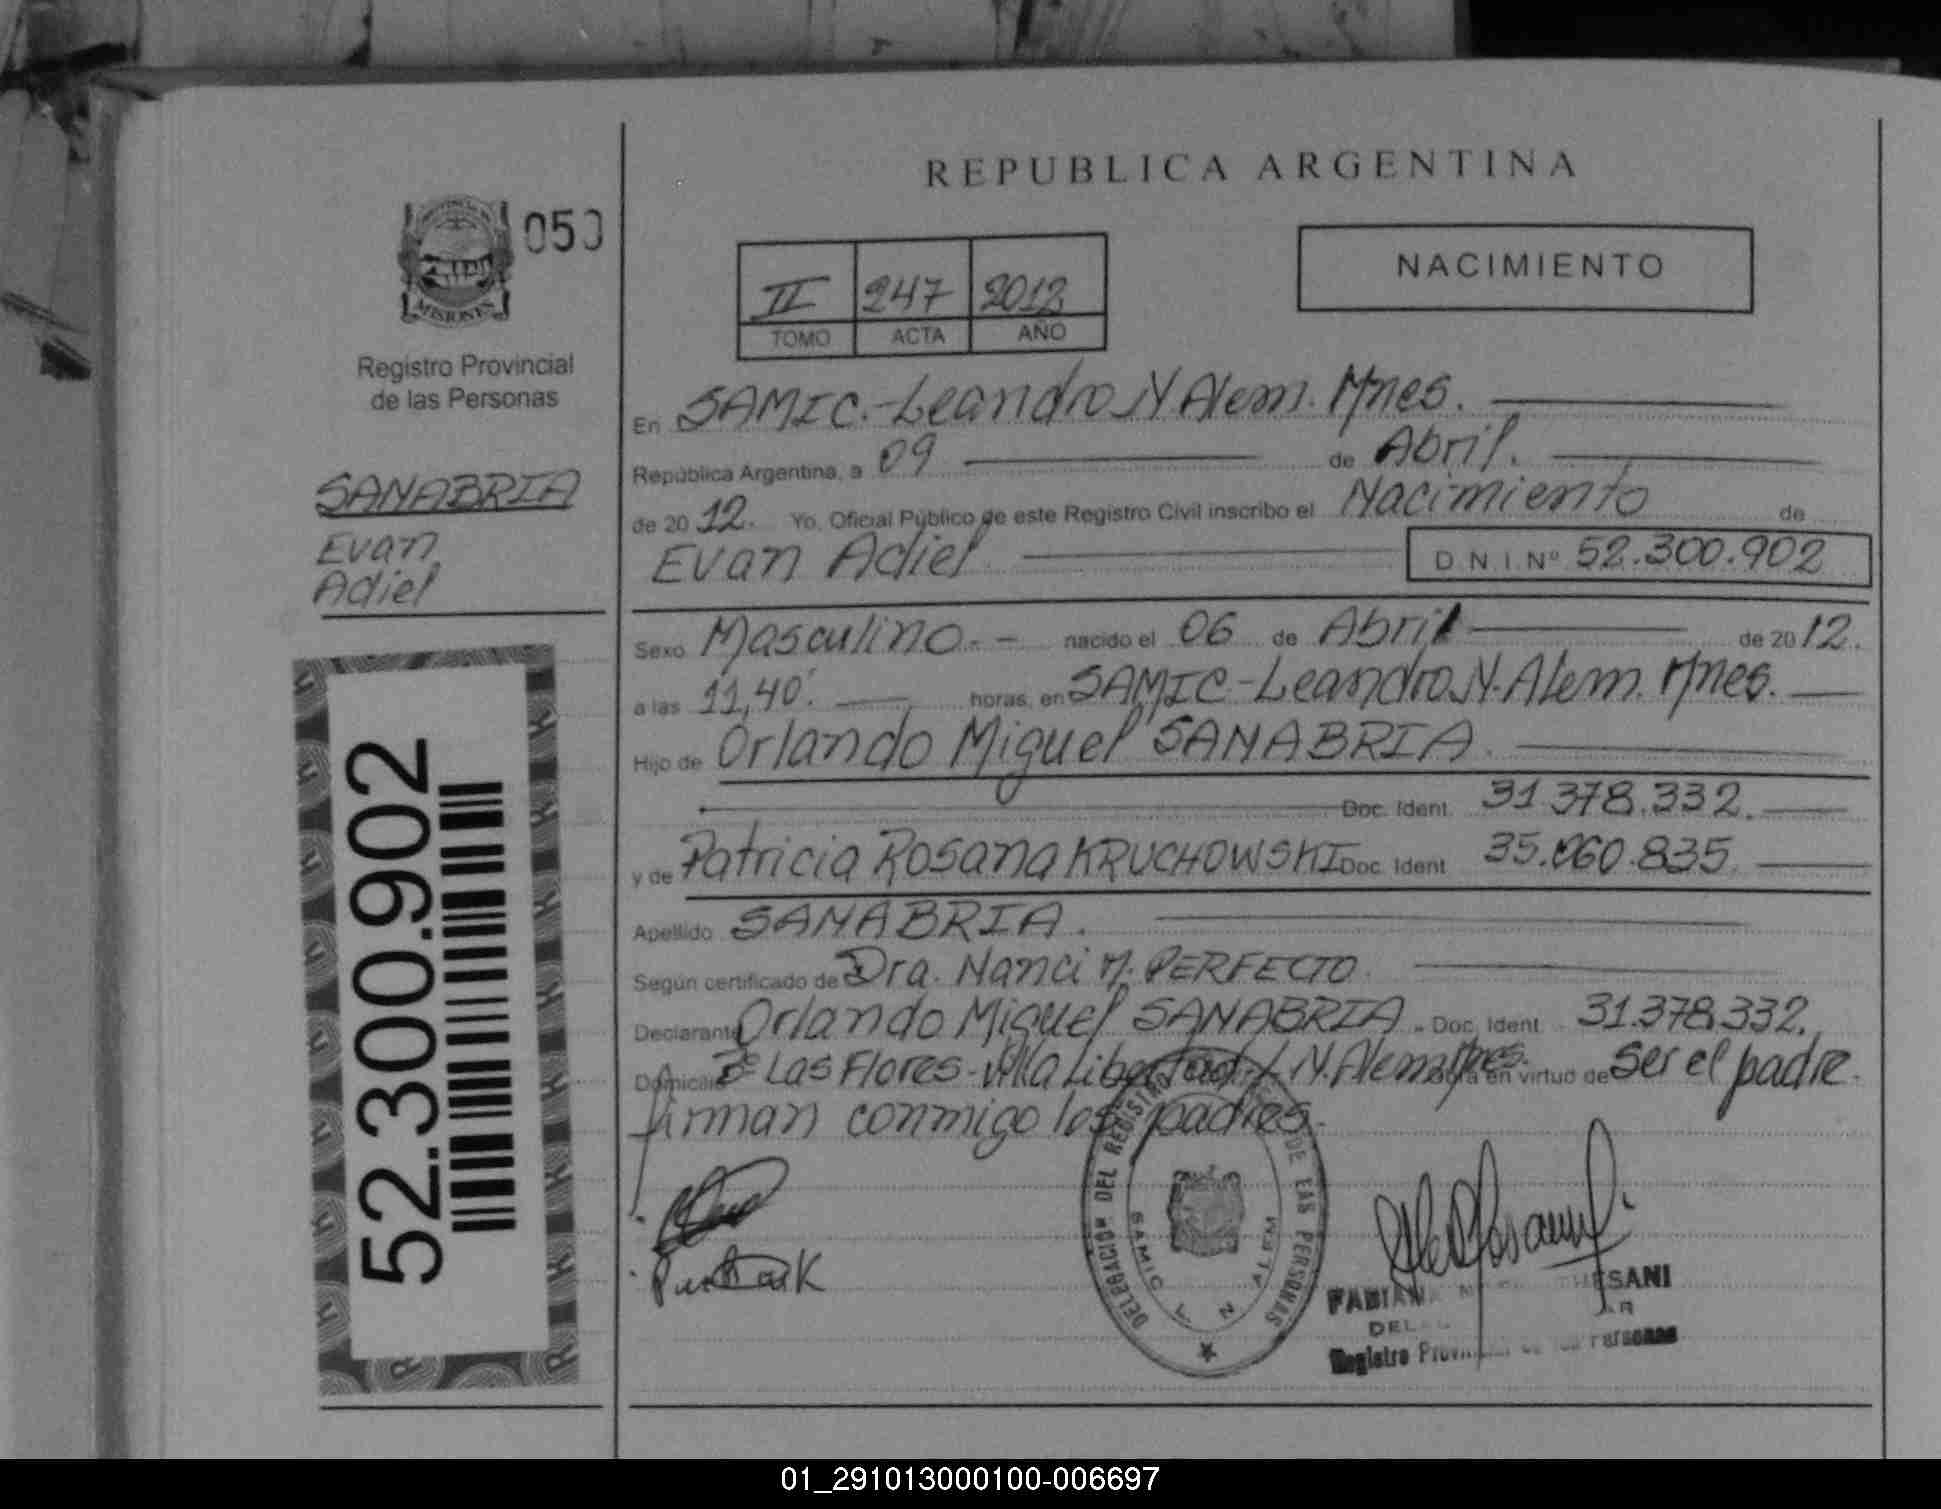 REPUBLICA ARGENTINA
PROVINCIA DE
MISIONES
050
Registro Provincial
de las Personas
SANABRIA
Evan
Adiel
52.300.902
II 247 2012
TOMO ACTA AÑO
NACIMIENTO
En SAMIC.-Leandro N. Alem. Mnes.
República Argentina, a 09 de Abril.
de 20 12. Yo, Oficial Público de este Registro Civil inscribo el Nacimiento de
Evan Adiel D.N.I.Nº 52.300.902
Sexo Masculino.- - nacido el 06 de Abril de 20 12.
a las 11,40'. horas, en SAMIC-Leandro N. Alem. Mnes.
Hijo de Orlando Miguel SANABRIA.
Doc. Ident. 31.378.332.
y de Patricia Rosana KRUCHOWSKI Doc. Ident 35.060.835.
Apellido SANABRIA.
Según certificado de Dra. Nanci M. PERFECTO.
Declarante Orlando Miguel SANABRIA.- Doc. Ident. 31.378.332.
Domicilio Bº Las Flores-Villa Libertad-L.N.Alem. Mnes. en virtud de Ser el padre.
firman conmigo los padres.-
DELEGACION DEL REGISTRO DE LAS PERSONAS
SAMIC L. N. ALEM
FABIANA
DEL
Registro Personas
01_291013000100-006697